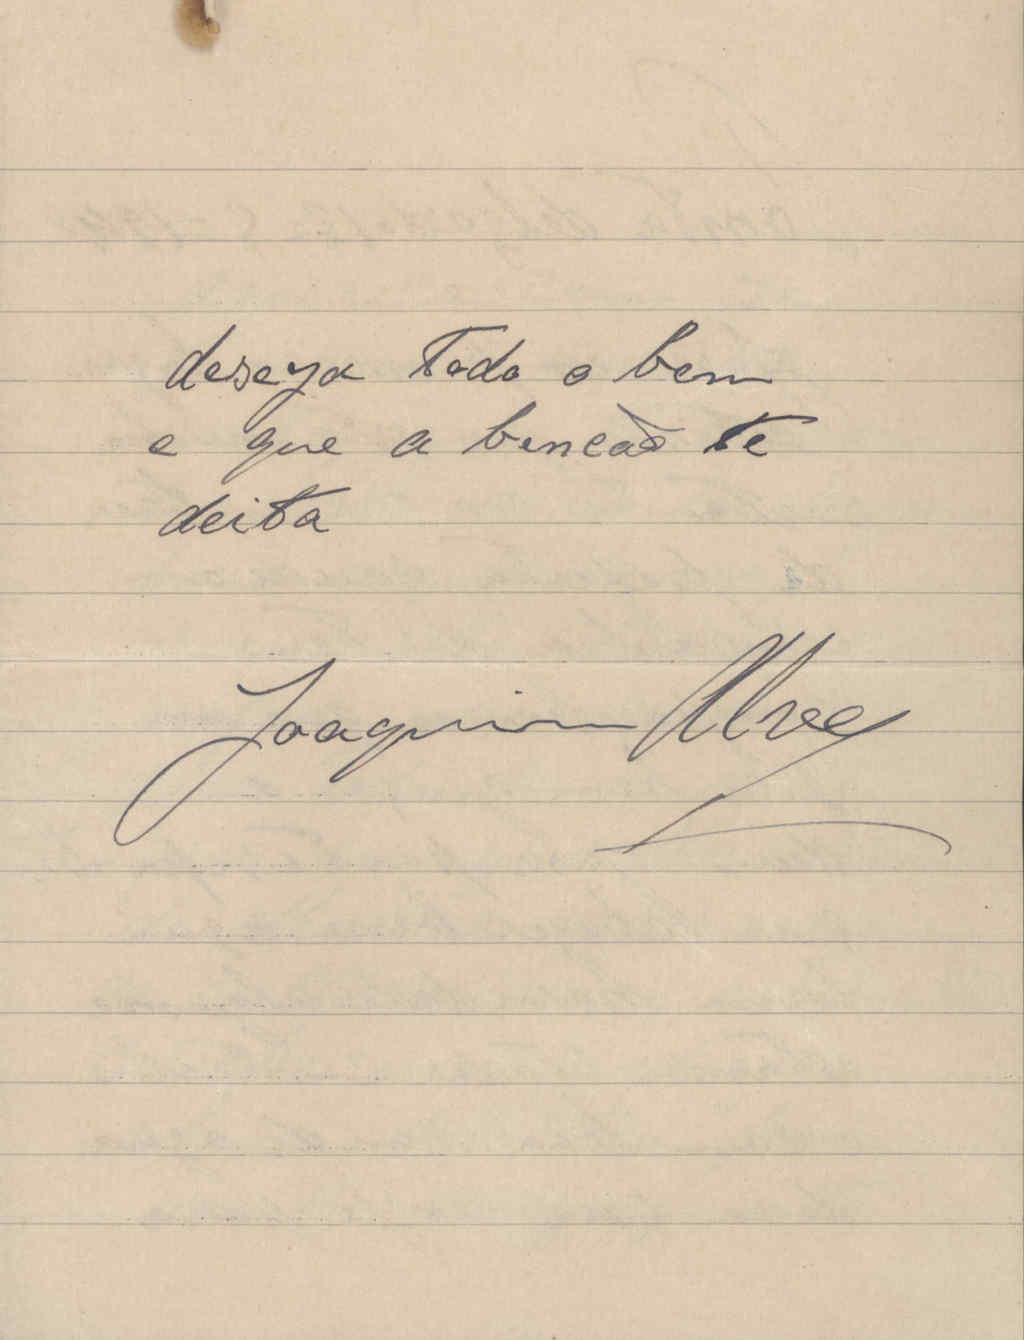 deseya todo o bem
e que a bencaõ te
deita
Joaquim Alves